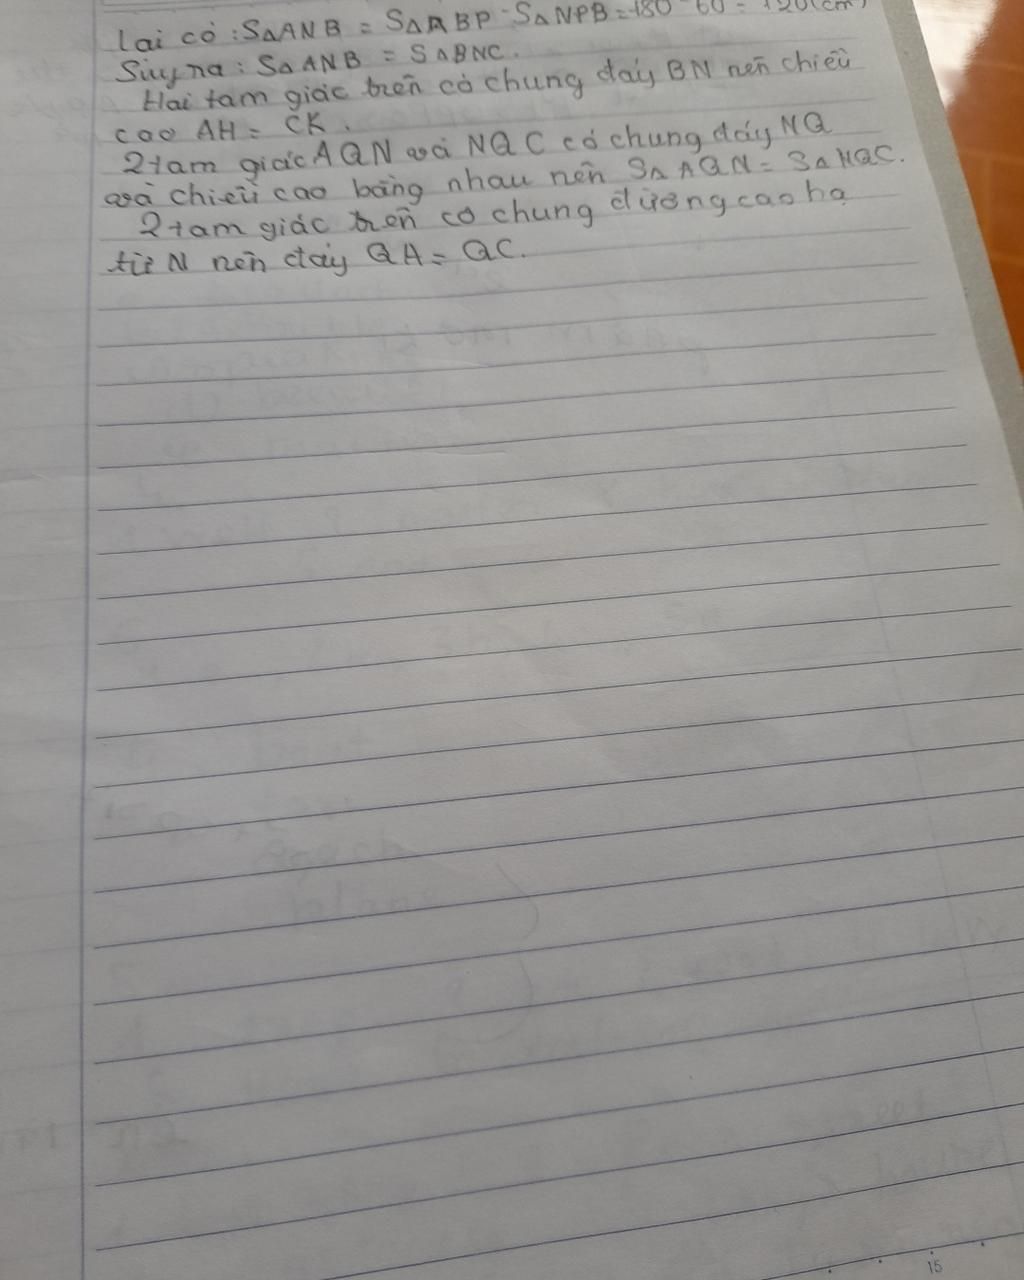 Lại có : S△ANB = S△ABP - S△NPB = 180 - 60 = 120(cm²)
Suy ra : S△ANB = S△BNC.
Hai tam giác trên có chung đáy BN nên chiều
cao AH = CK.
2 tam giác AQN và NQC có chung đáy NQ
và chiều cao bằng nhau nên S△AQN = S△NQC.
2 tam giác trên có chung đường cao hạ
từ N nên đáy QA = QC.
15